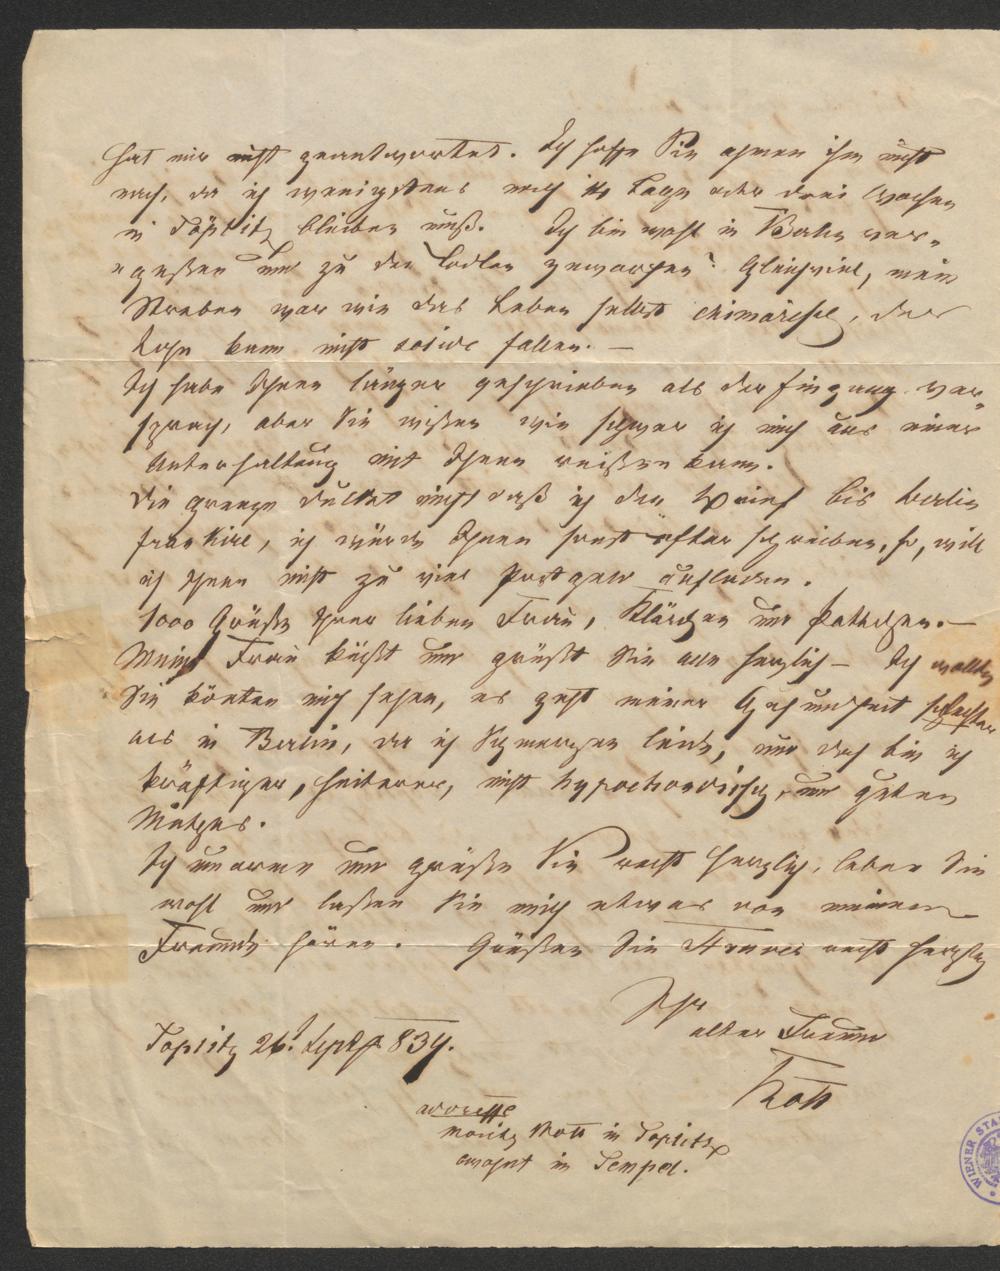 hat mir nicht geantwortet. Ich hoffe Sie ahmen ihm nicht
nach, da ich wenigstens noch 14 Tage oder drei Wochen
in Töplitz bleiben muß. Ich bin wohl in Berlin ver-
gessen und zu den Todten geworfen? Gleichviel, mein
Streben war wie das Leben selbst chimärisch, der
Lohn kann nicht solide fallen. —
Ich habe Ihnen länger geschrieben als der Eingang ver-
sprach, aber Sie wissen wie schwer ich mich aus einer
Unterhaltung mit Ihnen reißen kann.
Die Grenze duldet nicht daß ich den Brief bis Berlin
frankire, ich würde Ihnen sonst öfter schreiben, so, will
ich Ihnen nicht zu viel Postgeld aufladen.
1000 Grüße Ihrer lieben Frau, Klärchen und Pathchen. —
Meine Frau küßt und grüßt Sie alle herzlich — Ich wollte
Sie könten mich sehen, es geht meiner Gesundheit schlechter
als in Berlin, da ich Schmerzen leide, und doch bin ich
kräftiger, heiterer, nicht hypochondrisch, und guten
Muthes.
Ich umarme und grüße Sie recht herzlich, leben Sie
wohl und lassen Sie mich etwas von meinem
Freunde hören. Grüßen Sie recht herzlich
Ihr
alter Freund
Rott
Töplitz 26t Sept 834.
adresse
Moritz Rott in Töplitz
wohnt im Tempel.
WIENER STA